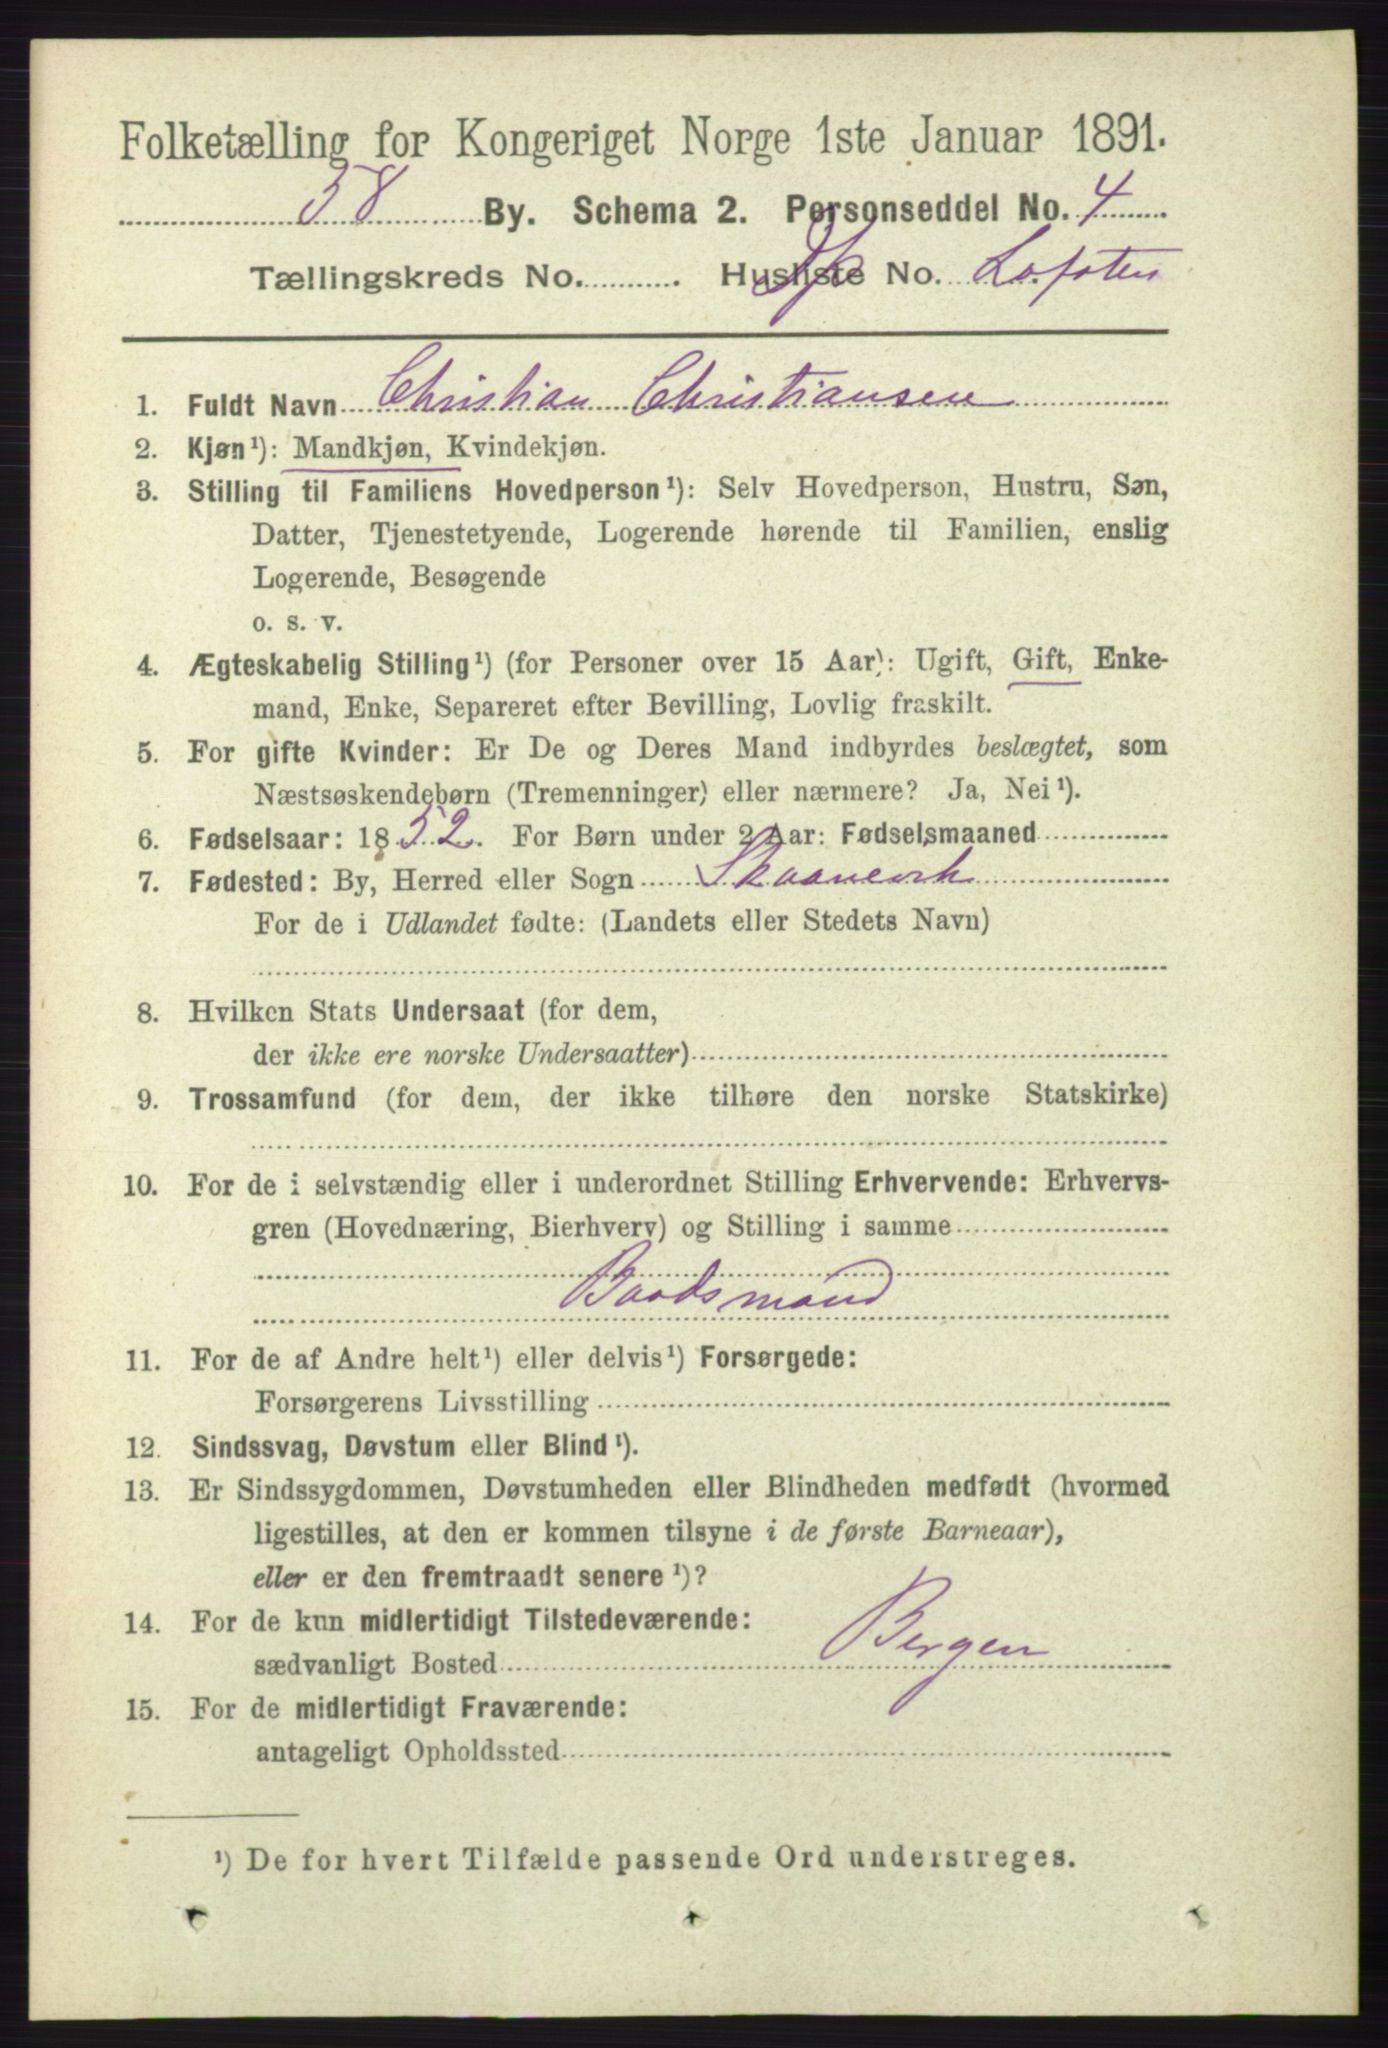 Folketælling for Kongeriget Norge 1ste Januar 1891.
58 By. Schema 2. Personseddel No. 4
Tællingskreds No. Husliste No. Lofoten
1. Fuldt Navn Christian Christiansen
2. Kjøn¹): Mandkjøn, Kvindekjøn.
3. Stilling til Familiens Hovedperson¹): Selv Hovedperson, Hustru, Søn,
Datter, Tjenestetyende, Logerende hørende til Familien, enslig
Logerende, Besøgende
o. s. v.
4. Ægteskabelig Stilling¹) (for Personer over 15 Aar): Ugift, Gift, Enke-
mand, Enke, Separeret efter Bevilling, Lovlig fraskilt.
5. For gifte Kvinder: Er De og Deres Mand indbyrdes beslægtet, som
Næstsøskendebørn (Tremenninger) eller nærmere? Ja, Nei¹).
6. Fødselsaar: 1852. For Børn under 2 Aar: Fødselsmaaned
7. Fødested: By, Herred eller Sogn Skaanevik
For de i Udlandet fødte: (Landets eller Stedets Navn)
8. Hvilken Stats Undersaat (for dem,
der ikke ere norske Undersaatter)
9. Trossamfund (for dem, der ikke tilhøre den norske Statskirke)
10. For de i selvstændig eller i underordnet Stilling Erhvervende: Erhvervs-
gren (Hovednæring, Bierhverv) og Stilling i samme
Baadsmand
11. For de af Andre helt¹) eller delvis¹) Forsørgede:
Forsørgerens Livsstilling
12. Sindssvag, Døvstum eller Blind¹).
13. Er Sindssygdommen, Døvstumheden eller Blindheden medfødt (hvormed
ligestilles, at den er kommen tilsyne i de første Barneaar),
eller er den fremtraadt senere¹)?
14. For de kun midlertidigt Tilstedeværende:
sædvanligt Bosted Bergen
15. For de midlertidigt Fraværende:
antageligt Opholdssted
¹) De for hvert Tilfælde passende Ord understreges.